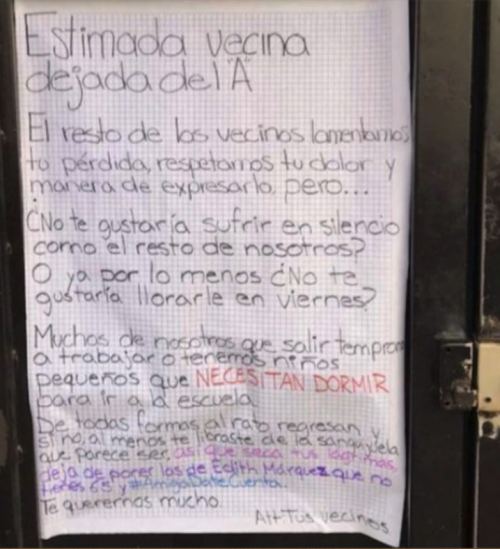 Estimada vecina
dejada del A
El resto de los vecinos lamentamos
tu pérdida, respetamos tu dolor y
manera de expresarlo, pero...
¿No te gustaría sufrir en silencio
como el resto de nosotros?
O ya por lo menos ¿No te
gustaría llorarle en viernes?
Muchos de nosotros que salir temprano
a trabajar o tenemos niños
pequeños que NECESITAN DORMIR
para ir a la escuela
De todas formas al rato regresan y
si no, al menos te libraste de la sanguijuela
que parece ser, así que seca tus lágrimas,
deja de poner las de Edith Márquez que no
tienes 65 y #AmigaDateCuenta.
Te queremos mucho.
Att-Tus vecinos